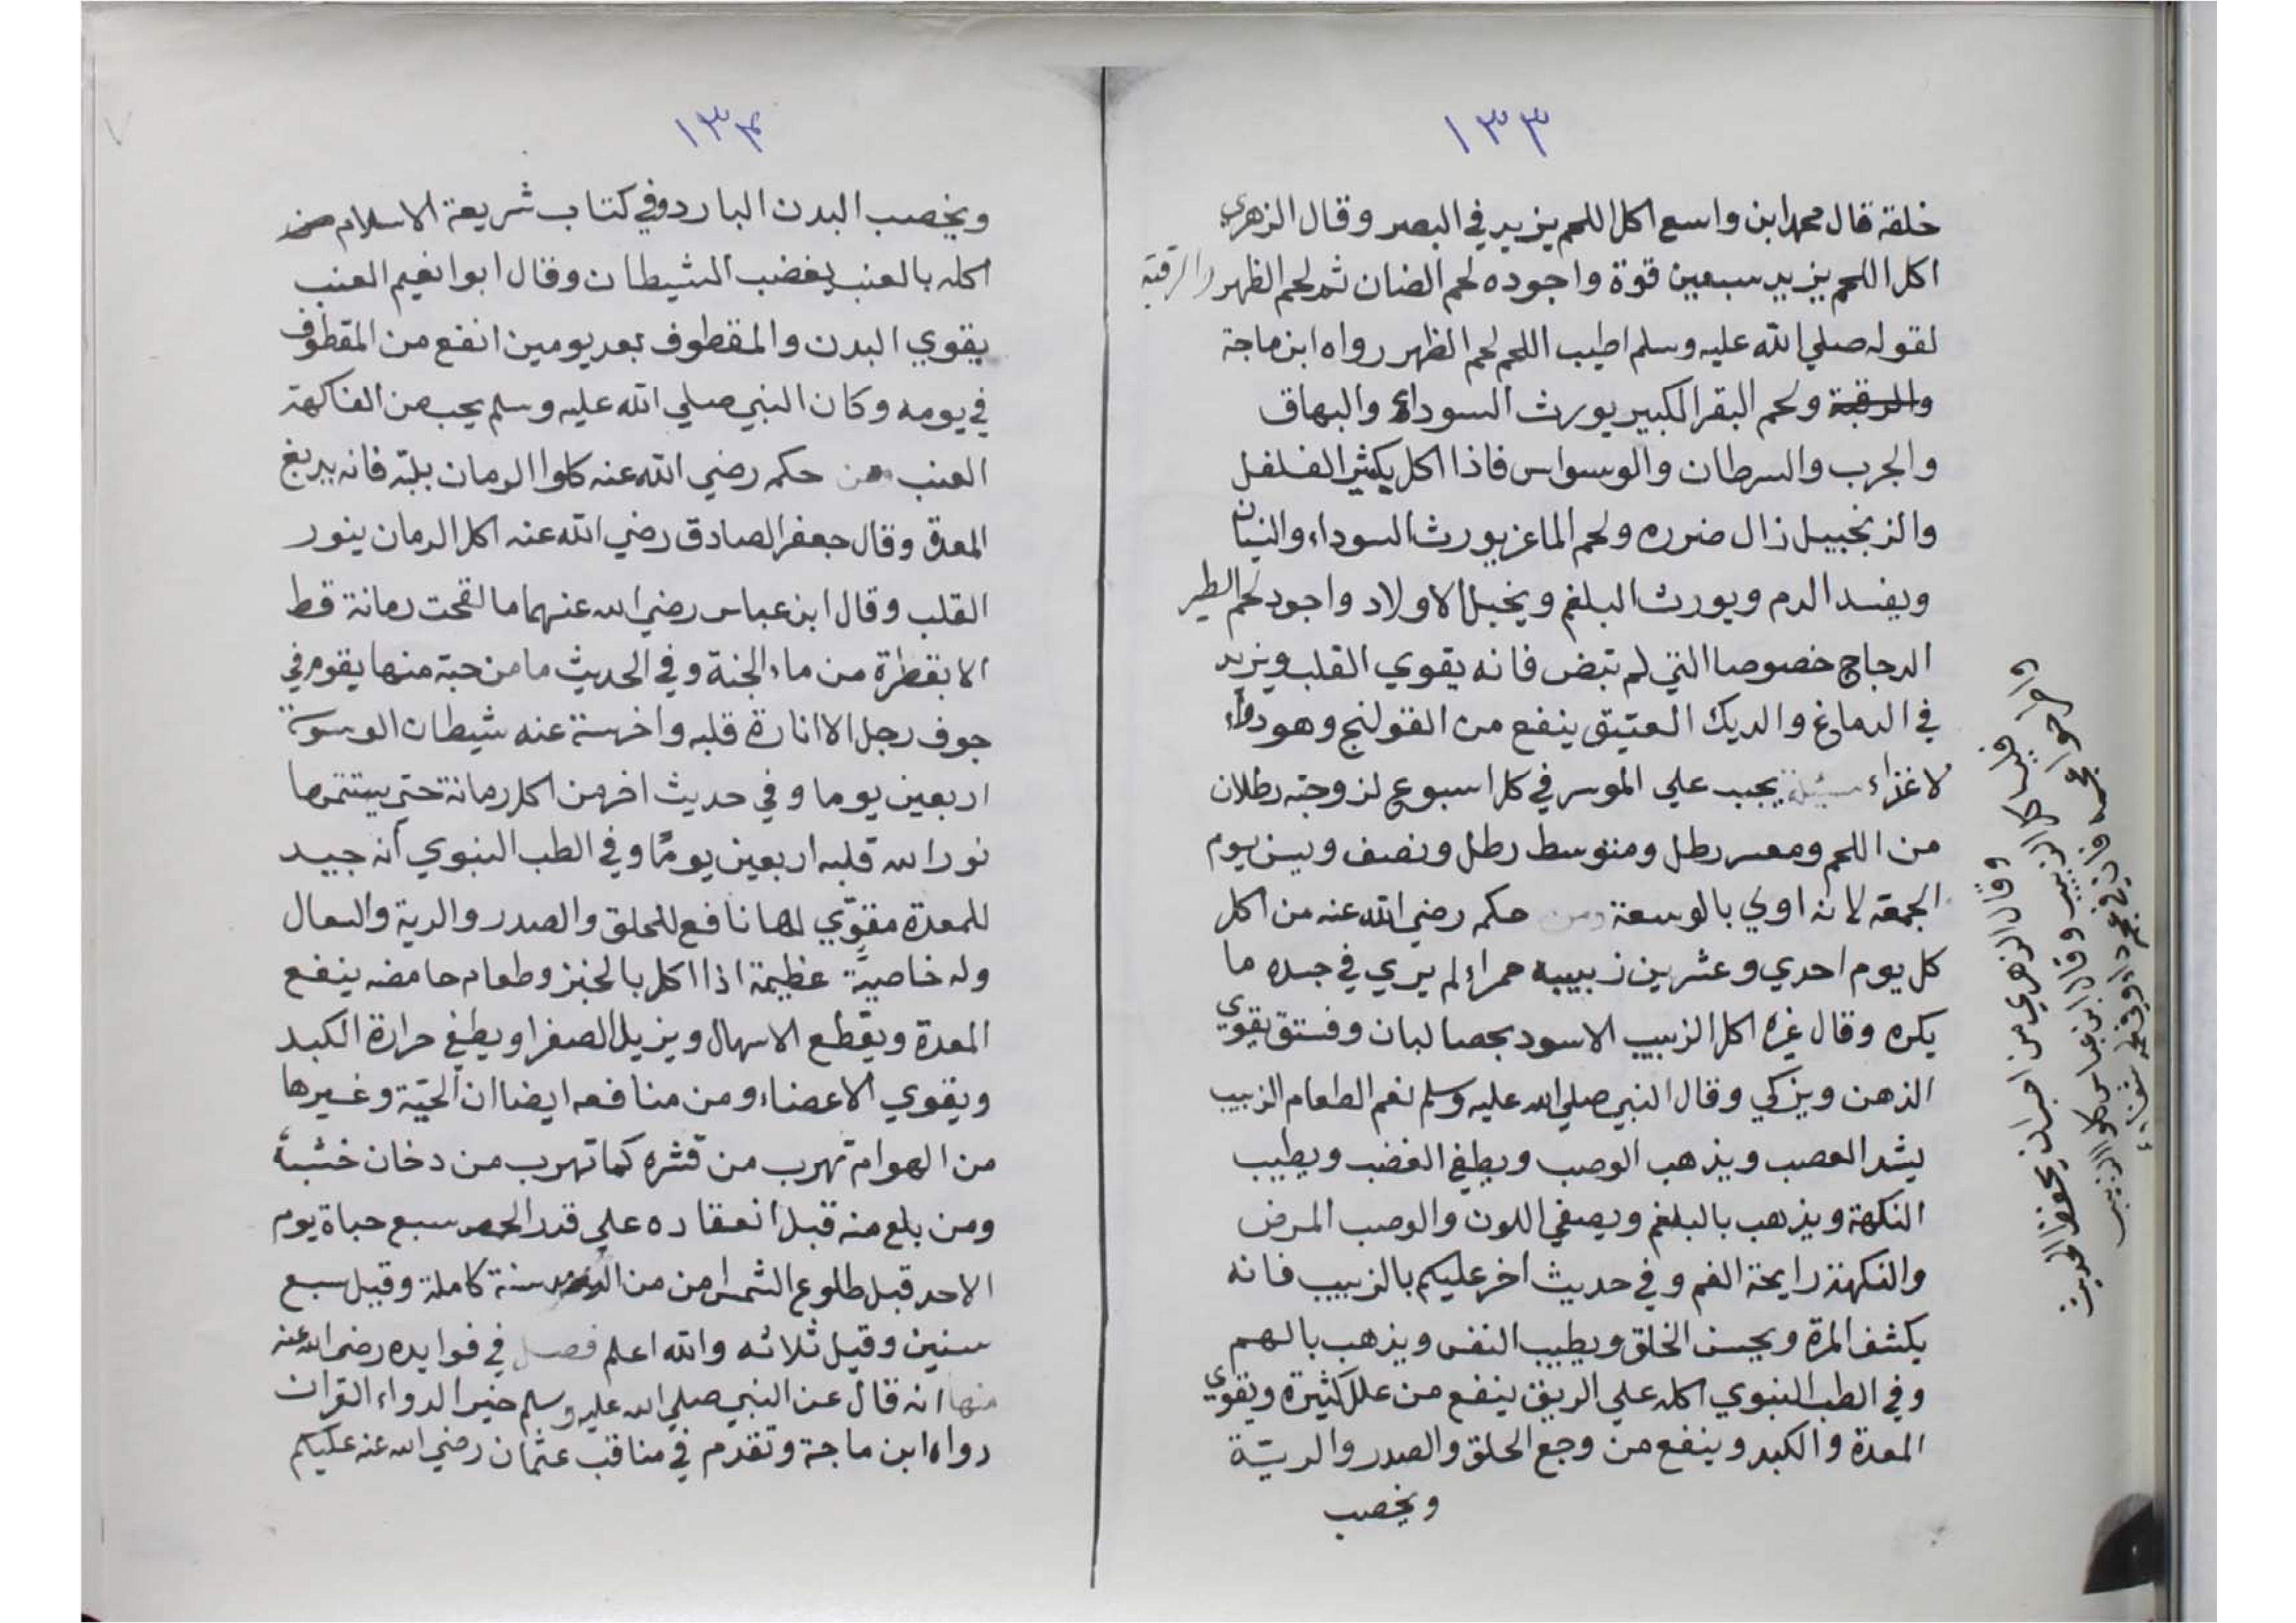 ١٣٣
خلقه قال محمد ابن واسع اكل اللحم يزيد في البصر وقال الزهري
اكل اللحم يزيد سبعين قوة واجوده لحم الضان ثم لحم الظهر والرقبة
لقوله صلي الله عليه وسلم اطيب اللحم لحم الظهر رواه ابن ماجة
والرقبة ولحم البقر الكبير يورث السوداء والبهاق
والجرب والسرطان والوسواس فاذا اكل بكثير الفلفل
والزنجبيل زال ضرره ولحم الماعز يورث السوداء والنسيان
ويفسد الدم ويورث البلغم ويخبل الاولاد واجود لحم الطير
الدجاج خصوصا التي لم تبض فانه يقوي القلب ويزيد
في الدماغ والديك العتيق ينفع من القولنج وهو دواء
لا غذاء مسئلة يجب علي الموسر في كل اسبوع لزوجته رطلان
من اللحم ومعسر رطل ومتوسط رطل ونصف ويسن يوم
الجمعة لانه اولي بالوسعة ومن حكمه رضي الله عنه من اكل
كل يوم احدي وعشرين زبيبه حمراء لم يري في جسده ما
يكره وقال غيره اكل الزبيب الاسود بحصا لبان وفستق يقوي
الذهن ويزكي وقال النبي صلي الله عليه وسلم نعم الطعام الزبيب
يشد العصب ويذهب الوصب ويطفي الغضب ويطيب
النكهة ويذهب بالبلغم ويصفي اللون والوصب المرض
والنكهة رايحة الفم وفي حديث اخر عليكم بالزبيب فانه
يكشف المرة ويحسن الخلق ويطيب النفس ويذهب بالهم
وفي الطب النبوي اكله علي الريق ينفع من علل كثيرة ويقوي
المعدة والكبد وينفع من وجع الحلق والصدر والريّة
ويخصب
وقال الزهري من احب ان يحفظ الحديث
فليأكل الزبيب وقال ابن عباس كلوا الزبيب
واطرحوا عجمه فان في عجمه داء وفي لحمه شفاء
١٣٤
ويخصب البدن البارد وفي كتاب شريعة الاسلام من
اكله بالعنب يغضب الشيطان وقال ابوا نعيم العنب
يقوي البدن والمقطوف بعد يومين انفع من المقطوف
في يومه وكان النبي صلي الله عليه وسلم يحب من الفاكهة
العنب ومن حكمه رضي الله عنه كلوا الرمان بلبه فانه يدبغ
المعدة وقال جعفر الصادق رضي الله عنه اكل الرمان ينور
القلب وقال ابن عباس رضي الله عنهما ما لقحت رمانة قط
الا بقطرة من ماء الجنة وفي الحديث ما من حبة منها يقوم في
جوف رجل الا انارة قلبه واخرسة عنه شيطان الوسوسة
اربعين يوما وفي حديث اخر من اكل رمانة حتي يستتمها
نور الله قلبه اربعين يومًا وفي الطب النبوي أنه جيد
للمعدة مقوّي لها نافع للحلق والصدر والرية والسعال
وله خاصيّة عظيمة اذا اكل بالخبز وطعام حامضه ينفع
المعدة ويقطع الاسهال ويزيل الصفرا ويطفي حرارة الكبد
ويقوي الاعضاء ومن منافعه ايضا ان الحيّة وغيرها
من الهوام تهرب من قشره كما تهرب من دخان خشبه
ومن بلع منه قبل انعقاده علي قدر الحمص سبع حباة يوم
الاحد قبل طلوع الشمس امن من الرمد سنة كاملة وقيل سبع
سنين وقيل ثلاثه والله اعلم فصل في فوايده رضي الله عنه
منها انه قال عن النبي صلي الله عليه وسلم خير الدواء القران
رواه ابن ماجة وتقدم في مناقب عثمان رضي الله عنه عليكم